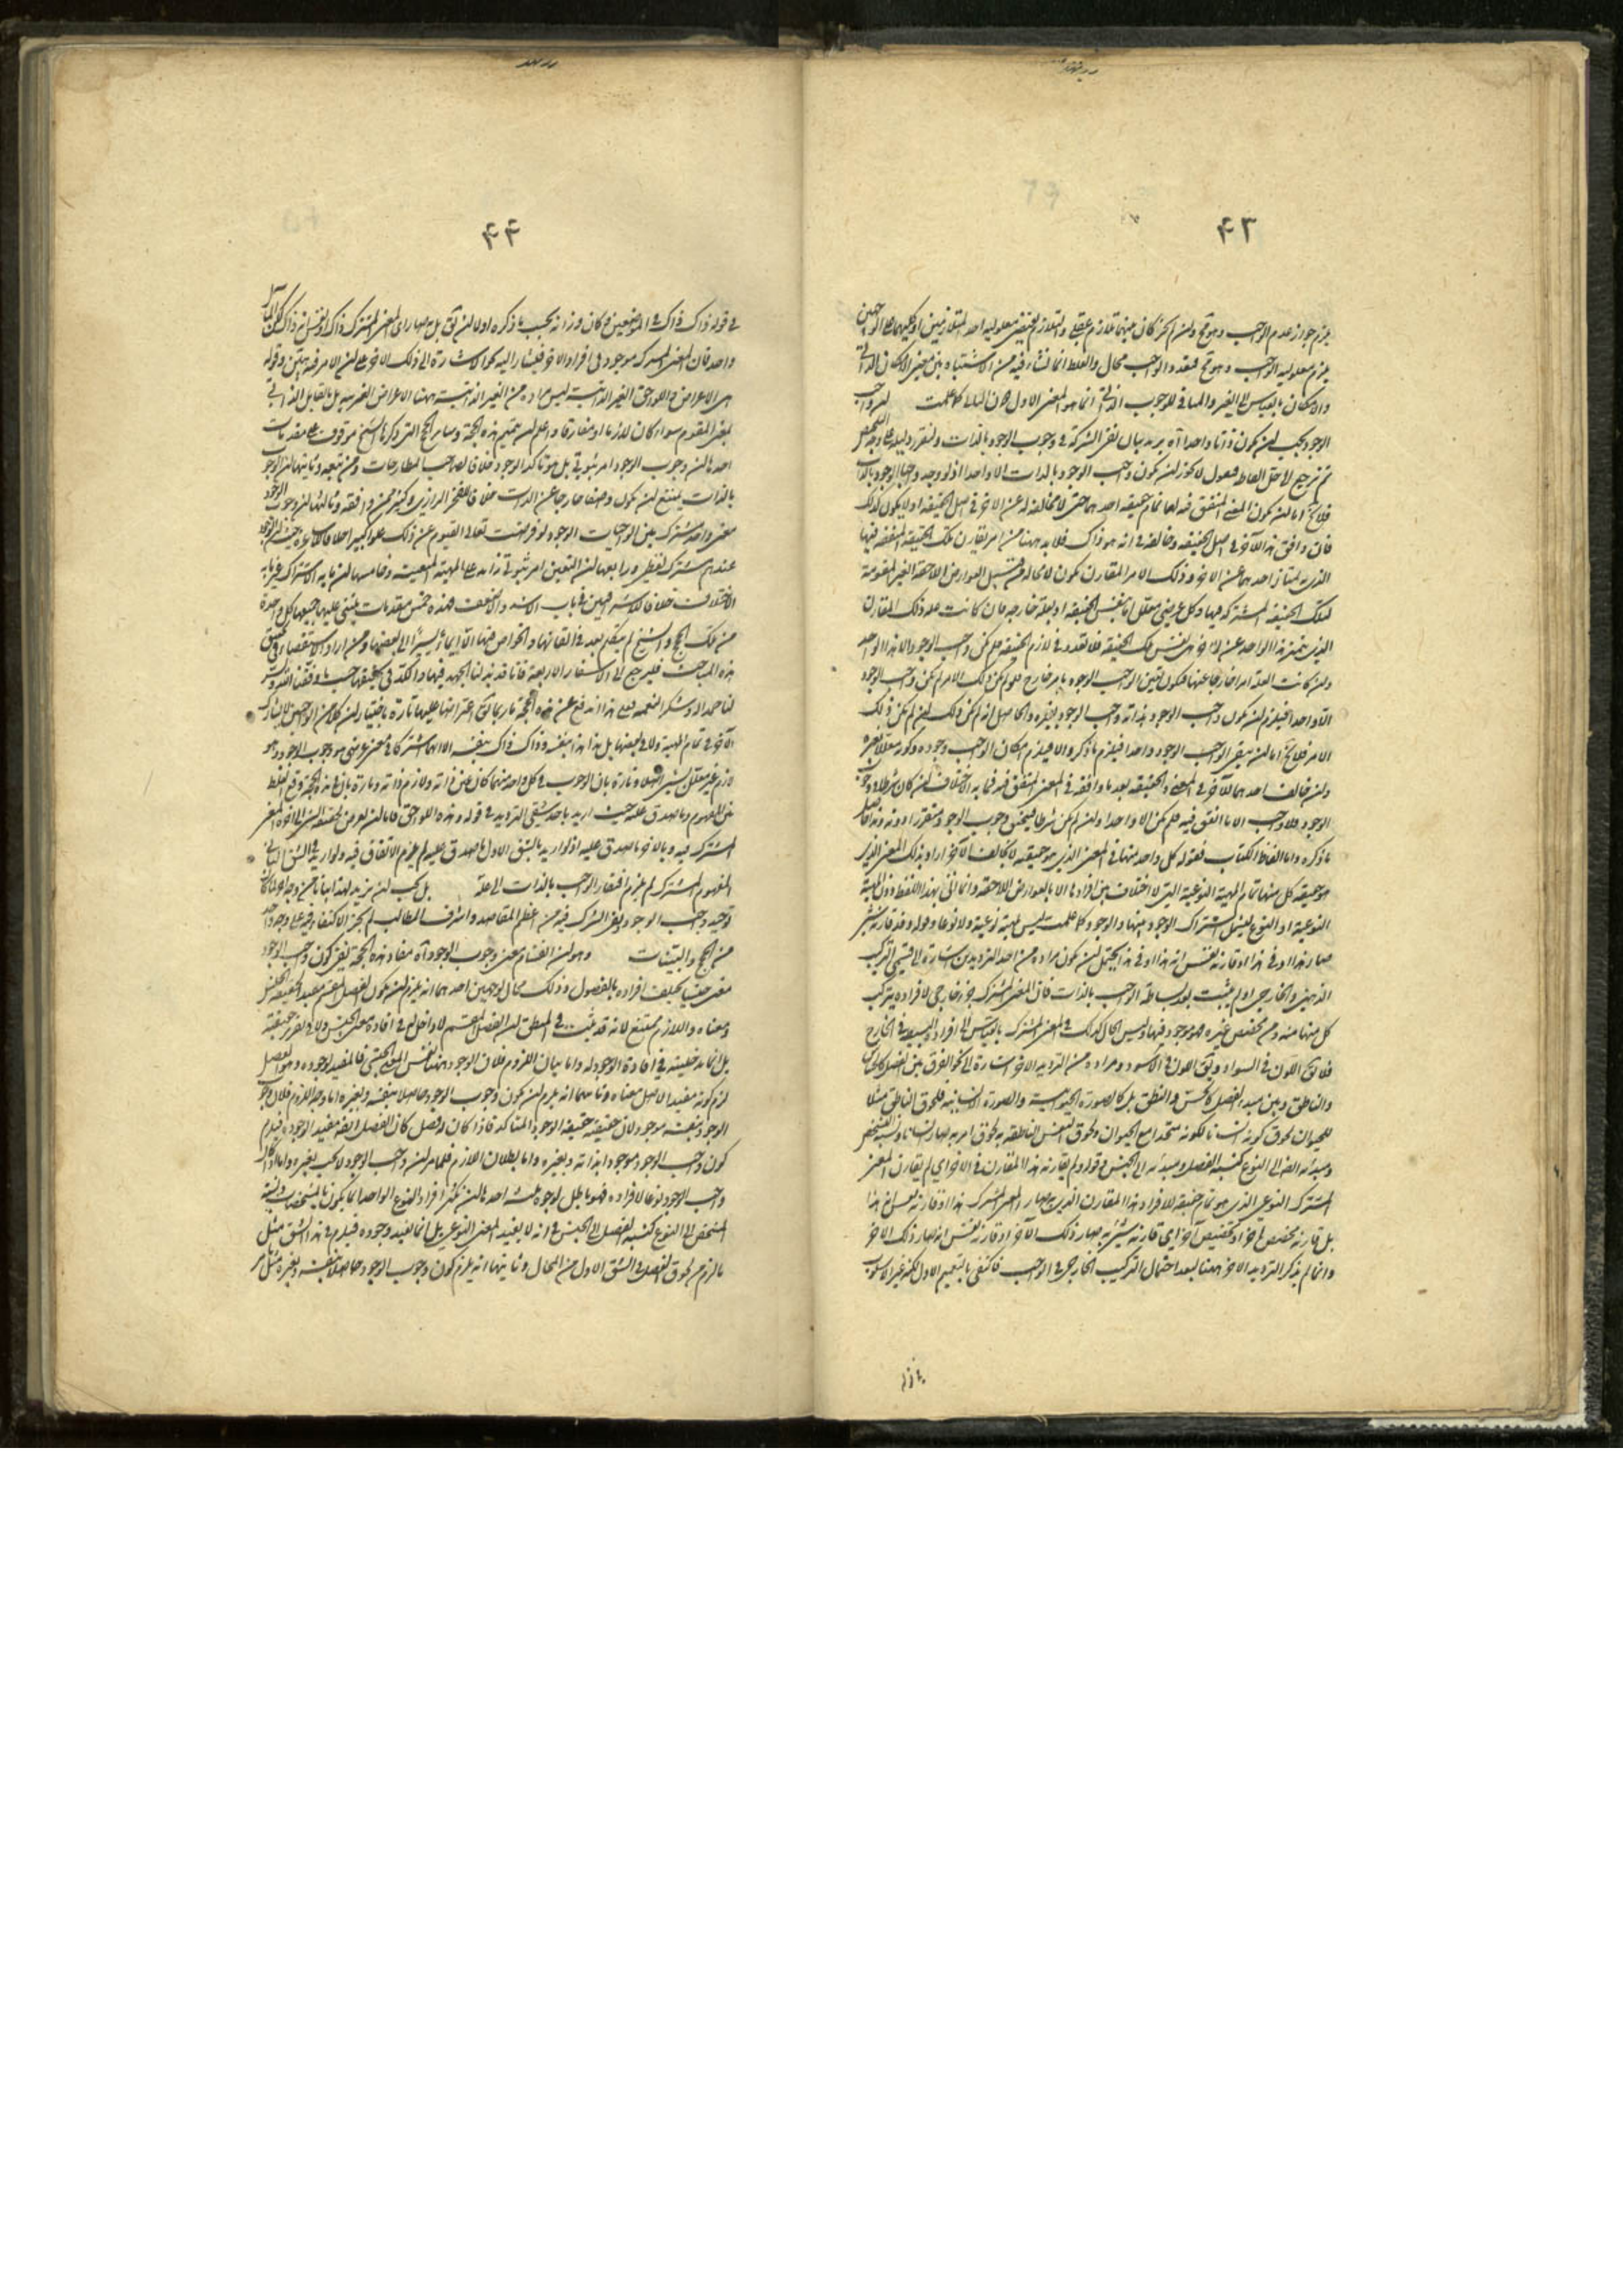 ۴۳
يلزم جواز عدم الواجب وهو مح وان لم يجز كان بينهما تلازم عقلى والتلازم يقتضى معلولية احد المتلازمين او كليهما على الوجهين
يلزم معلولية الواجب وهو مح فتعدد الواجب محال والغلط انما نشاء فيه من الاشتباه بين معنى الامكان الذاتى
والامكان بالقياس الى الغير والمنافى للوجوب الذاتى انما هو المعنى الاول دون الثانى كما علمت
الوجود يجب ان يكون ذاتا واحدا آه يريد بيان نفى الشركة فى وجوب الوجود بالذات ولنقرر دليله على وجه
ثم نرجع لاحل الفاظه فنقول لا يجوز ان يكون واجب الوجود بالذات الا واحدا اذ لو وجد واجبا الوجود بالذات
فلا يخ اما ان يكون المعنى المتفق فيه لهما تمام حقيقة احدهما حتى لا مخالفة له عن الاخر فى اصل الحقيقة او لا يكون كذلك
فان وافق هذا الآخر فى اصل الحقيقة وخالفه فى انه هو ذاك فلا بد ههنا من امر يقارن تلك الحقيقة المتفقة فيها
الذى به امتاز احدهما عن الاخر وذلك الامر المقارن يكون لا محالة من قبيل العوارض اللاحقة الغير المقومة
لتلك الحقيقة المشتركة فيها وكل عرضى معلل اما بنفس الحقيقة او بعلة خارجه فان كانت علة ذلك المقارن
الذى يميز هذا الواحد عن الاخر هى نفس تلك الحقيقة فلا تعدد فى لازم الحقيقة فلم يكن واجب الوجود الا هذا الواحد
وان كانت العلة امرا خارجا عنها فيكون تعين الواجب الوجود بامر خارج فلو لم يكن ذلك الامر لم يكن واجب الوجود
الا واحدا فيلزم ان يكون واجب الوجود بذاته واجب الوجود بغيره والحاصل انه لم يكن ذلك ان لم يكن ذلك
الامر فلا يخ اما ان يبقى الواجب الوجود واحدا فيلزم ما ذكر والا فيلزم امكان الواجب وجوده وكونه معللا بغيره
وان خالف احدهما للآخر فى المعنى والحقيقة بعد ما وافقه فى المعنى المتفق فيه فما به الاختلاف ان كان شرطا فى وجوب
الوجود فلا واجب الا ما اتفق فيه فلم يكن الا واحدا وان لم يكن شرطا فيتحقق وجوب الوجود ومتقرر دونه
ما ذكره واما الفاظ الكتاب فقوله كل واحد منهما فى المعنى الذى هو حقيقته لا يخالف الآخر اراد بذلك المعنى الذى
هو حقيقة كل منهما تمام المهية النوعية التى لا اختلاف بين افرادها الا بالعوارض اللاحقة وانما اتى بهذا اللفظ دون المهية
النوعية او النوع ليشمل اشتراك الوجود بينها والوجود كما علمت ليس مهية نوعية ولا نوعا وقوله وقد قارنه شىء
صار هذا او فى هذا او قارنه نفس انه هذا او فى هذا يحتمل ان يكون مراده من احد الترديدين اشارة الى قسمى التركيب
الذهنى والخارجى اذ لم يثبت بعد بساطة الواجب بالذات فان المعنى المشترك جزء خارجى لافراده يتركب
كل منها منه ومن مخصص غيره فهو موجود فيها وليس الحال كذلك فى المعنى المشترك بالقياس الى افراده البسيطة فى الخارج
فلا يق اللون فى السواد ويق اللون فى الاسود ومراده من الترديد الاخر اشارة الى نحو الفرق بين الفصل كالحساس
والناطق وبين مبدء الفصل كالحس والنطق بل كالصورة الحيوانية والصورة الانسانية فلحوق الناطق مثلا
للحيوان لحوق كونه انسانا لكونه متحدا مع الحيوان ولحوق النفس الناطقه به لحوق امر به صار انسانا ونسبة التشخص
ومبدئه ايضا الى النوع كنسبة الفصل ومبدئه الى الجنس وقوله ولم يقارنه هذا المقارن فى الاخر اى لم يقارن المعنى
المشترك النوعى الذى هو تمام حقيقة الافراد هذا المقارن الذى به صار المعنى المشترك هذا او قارنه نفس انه هذا
بل قارنه مخصص اخر او تخصيص آخر اى قارنه شىء به صار ذلك الآخر او قارنه نفس انه صار ذلك الآخر
وانما لم يذكر الترديد الاخر ههنا لبعد احتمال التركيب الخارجى فى الواجب فاكتفى بالتعميم الاول لكنه غير الاسلوب
۴۴
فى قوله ذاك فى ذاك فى الموضعين وكان وزانه بحسب ما ذكره اولا ان يق بل به صار المعنى المشترك ذاك او نفس انه ذاك
واحد فان المعنى المشترك موجود فى افراد الاخر فيشار اليه نحو الاشارة الى ذلك الاخر على ان الامر فيه هين وقوله
هى الاعراض واللواحق الغير الذاتية ليس مراده من الغير الذاتية ههنا الاعراض الغريبة بل ما يقابل الذاتى
بمعنى المقوم سواء كان لازما او مفارقا واعلم ان تتميم هذه الحجة وسائر الحجج التى ذكرها الشيخ موقوف على مقدمات
احدها ان وجوب الوجود امر ثبوتى بل هو تأكد الوجود خلافا لصاحب المطارحات ومن تبعه وثانيتها ان الوجود
بالذات يمتنع ان يكون وصفا خارجا عن الذات خلافا للفخر الرازى وكثير ممن وافقه وثالثتها ان وجوب الوجود
معنى واحد مشترك بين الواجبات الوجود لو فرضت تعالى القيوم عن ذلك علوا كبيرا خلافا للاشاعرة
عندهم مشترك لفظى ورابعها ان التعين امر ثبوتى زائد على المهية المتعينة وخامسها ان ما به الاشتراك غير ما به
الاختلاف خلافا للاشراقيين فى باب الاشد والاضعف فهذه خمس مقدمات يبتنى عليها جميعها كل واحدة
من تلك الحجج والشيخ لم يتكلم بعد فى اتقانها والخوض فيها الا ايماء يسيرا الى بعضها ومن اراد الاستقصاء فى تحقيق
هذه المباحث فليرجع الى الاسفار الاربعة فانا قد بذلنا الجهد فيها والكد فى تحقيقها حسب ما وفقنا الله
لنا حمدا له وشكرا لنعمه فعلى هذا اندفع عن هذه الحجة ما ربما يق اعتراضا عليها تارة باختيار ان كلا من الواجبين لا يشارك
الآخر فى تمام المهية ولا فى بعضها بل هذا هذا بنفسه وذاك ذاك بنفسه الا انهما اشتركا فى معنى عرضى هو وجوب الوجود وهو
لازم غير معلل بشىء اصلا وتارة بان الوجوب فى كل واحد منهما كان عين ذاته ولازم ذاته وتارة بان فى هذه الحجة وقع الغلط
بين المفهوم وما يصدق عليه حيث اريد باحد شقى الترديد فى قوله وهذه اللواحق فاما ان تعرض لحقيقة الشىء الى آخره المعنى
المشترك فيه وبالآخر ما يصدق عليه اذ لو اريد بالشق الاول ما صدق عليه لم يلزم الاتفاق فيه ولو اريد فى الشق الثانى
المفهوم المشترك لم يلزم افتقار الواجب بالذات الى علة بل يجب ان نزيد لهذا بيانا من وجه آخر
توحيد واجب الوجود ونفى الشرك فيه من اعظم المقاصد واشرف المطالب لم يجز الاكتفاء فيه على وجه واحد
من الحجج والبينات وهو ان انقسام معنى وجوب الوجود آه مفاد هذه الحجة نفى كون واجب الوجود
معنى جنسيا يختلف افراده بالفصول وذلك محال لوجهين احدهما انه يلزم ان يكون الفصل المقسم مفيد الحقيقة الجنس
ومعناه واللازم ممتنع لانه قد ثبت فى المنطق ان الفصل المقسم لا دخل له فى افادة معنى الجنس ولا فى تقرر حقيقته
بل انما مدخليته فى افادة الوجود له واما بيان اللزوم فلان الوجود ههنا نفس المعنى الجنسى فالمفيد لوجوده وهو الفصل
لزم كونه مفيدا لاصل معناه وثانيهما انه يلزم ان يكون وجوب الوجود حاصلا بنفسه وبغيره اما وجه اللزوم فلان وجوب
الوجود بنفسه موجود لان حقيقته حقيقة الوجود المتأكد فاذا كان له فصل كان الفصل ايضا مفيد الوجود فيلزم
كون واجب الوجود موجودا بذاته وبغيره واما بطلان اللازم فلما مر ان واجب الوجود لا يجب بغيره واما اذا كان
واجب الوجود نوعا لافراده فهو باطل لوجوه ثلثة احدها ان تكثر افراد النوع الواحد انما يكون بالمشخصات ونسبة
المشخص الى النوع كنسبة الفصل الى الجنس فى انه لا يفيد المعنى النوعى بل انما يفيد وجوده فيلزم فى هذا الشق مثل
ما لزم لحوق الفصل فى الشق الاول من المحال وثانيتها انه يلزم كون وجوب الوجود حاصلا بنفسه وبغيره مثل ما مر